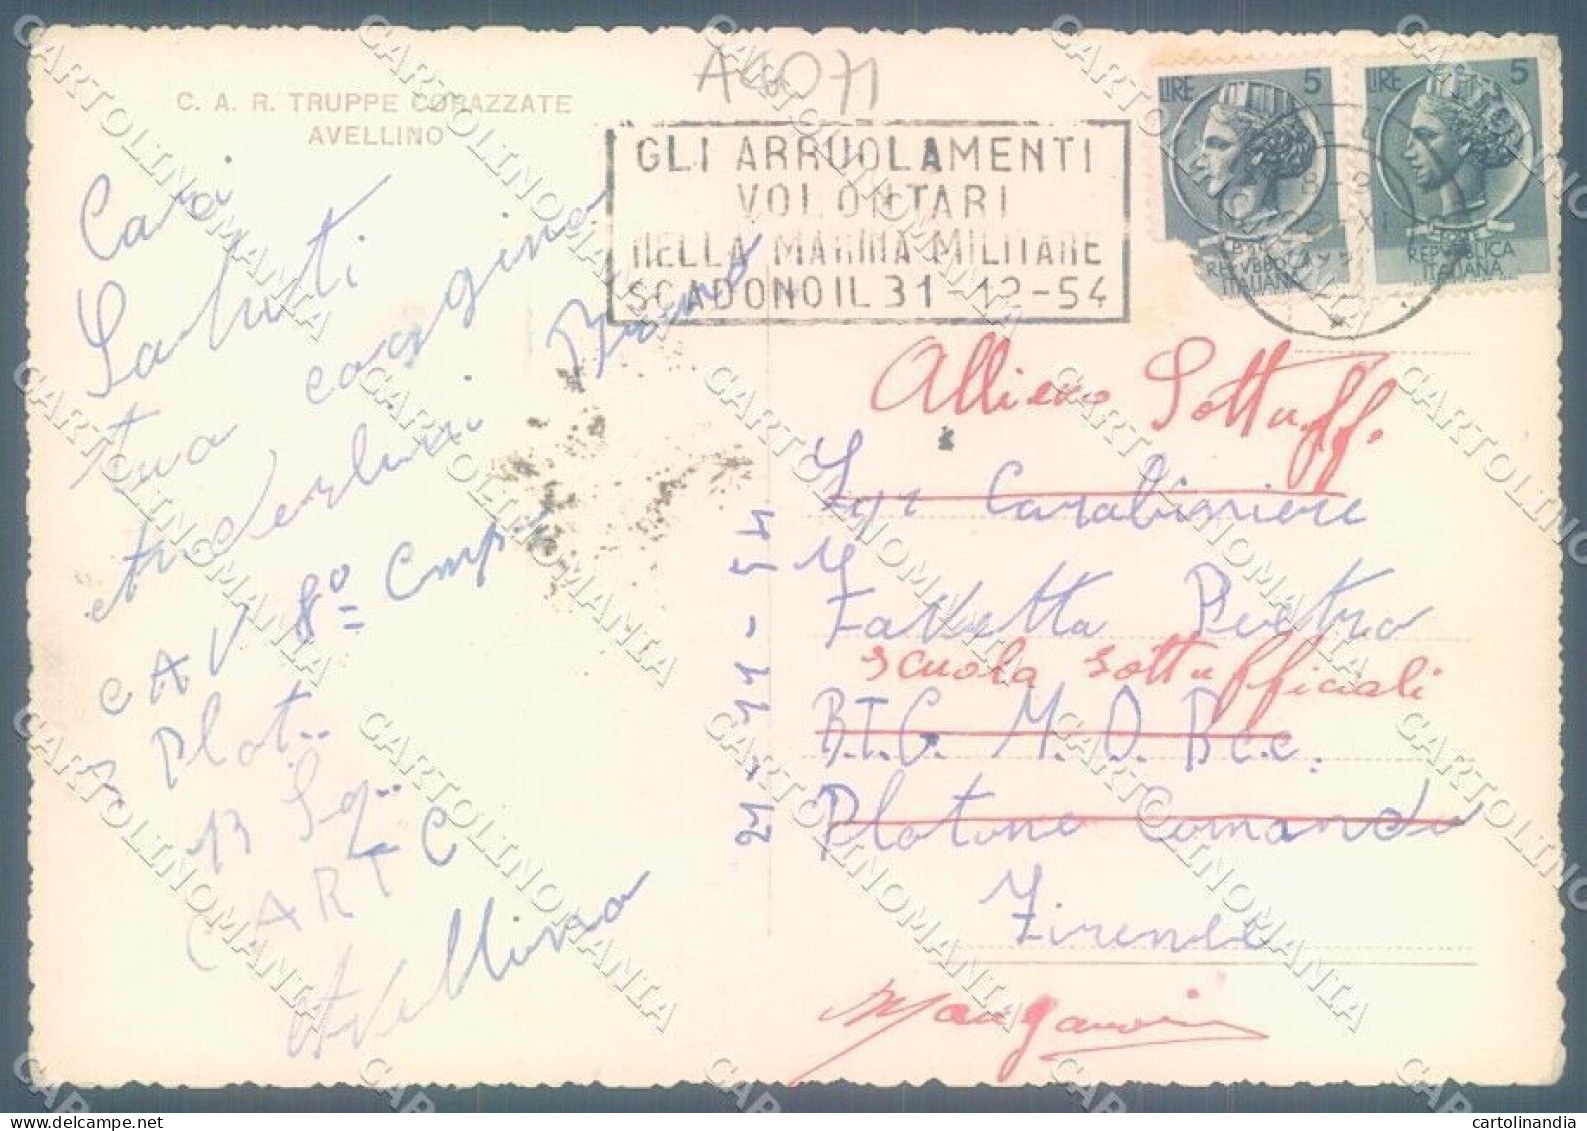 C. A. R. TRUPPE CORAZZATE
AVELLINO
A4071
GLI ARRUOLAMENTI
VOLONTARI
NELLA MARINA MILITARE
SCADONO IL 31-12-54
LIRE 5
REPUBBLICA
ITALIANA
LIRE 5
REPUBBLICA
ITALIANA
Cari
Saluti
tuo cuggino
Bruno
CAV 8º Cmp
3 Plot.
13 Sq.
C A R T C
Avellino
21-11-54
Allievo Sottuff.
Carabiniere
Favetta Pietro
scuola sottufficiali
B.T.G. M. O. Bcc.
Plotone Comando
Firenze
CARTOLINOMANIA
cartolinandia